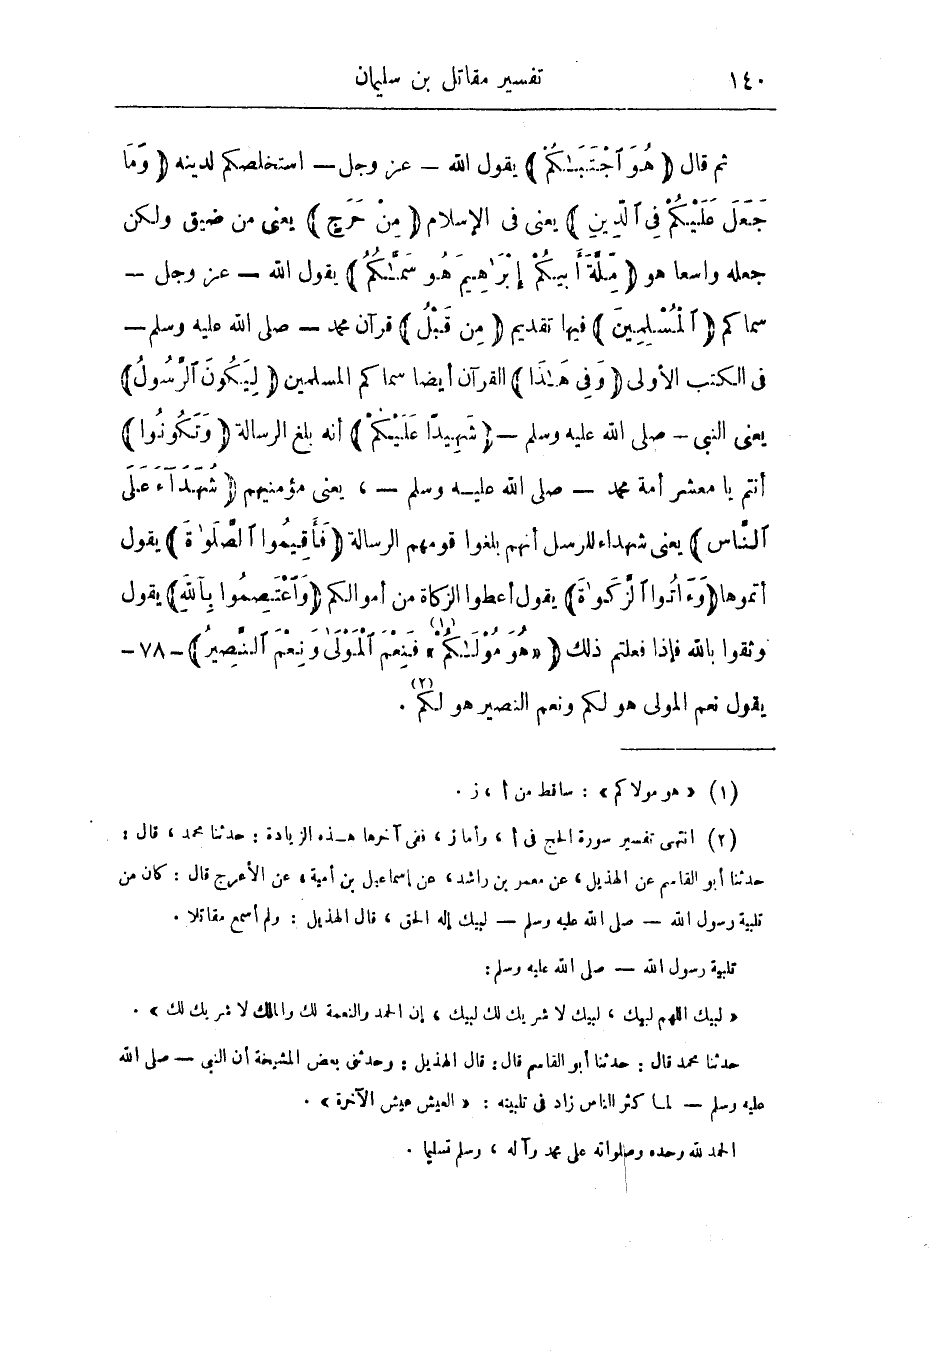 ١٤٠ تفسير مقاتل بن سليمان
ثم قال ﴿ هُوَ ٱجْتَبَىٰكُمْ ﴾ يقول الله — عز وجل — استخلصكم لدينه ﴿ وَمَا
جَعَلَ عَلَيْكُمْ فِى ٱلدِّينِ ﴾ يعنى فى الإسلام ﴿ مِنْ حَرَجٍ ﴾ يعنى من ضيق ولكن
جعله واسعا هو ﴿ مِّلَّةَ أَبِيكُمْ إِبْرَٰهِيمَ هُوَ سَمَّىٰكُمُ ﴾ يقول الله — عز وجل —
سماكم ﴿ ٱلْمُسْلِمِينَ ﴾ فيها تقديم ﴿ مِن قَبْلُ ﴾ قرآن محمد — صلى الله عليه وسلم —
فى الكتب الأولى ﴿ وَفِى هَـٰذَا ﴾ القرآن أيضا سماكم المسلمين ﴿ لِيَكُونَ ٱلرَّسُولُ ﴾
يعنى النبى — صلى الله عليه وسلم — ﴿ شَهِيدًا عَلَيْكُمْ ﴾ أنه بلغ الرسالة ﴿ وَتَكُونُوا ﴾
أنتم يا معشر أمة محمد — صلى الله عليه وسلم — ، يعنى مؤمنيهم ﴿ شُهَدَآءَ عَلَى
ٱلنَّاسِ ﴾ يعنى شهداء للرسل أنهم بلغوا قومهم الرسالة ﴿ فَأَقِيمُوا ٱلصَّلَوٰةَ ﴾ يقول
أتموها ﴿ وَءَاتُوا ٱلزَّكَوٰةَ ﴾ يقول أعطوا الزكاة من أموالكم ﴿ وَٱعْتَصِمُوا بِٱللَّهِ ﴾ يقول
وثقوا بالله فإذا فعلتم ذلك ﴿ « هُوَ مَوْلَىٰكُمْ » (١) فَنِعْمَ ٱلْمَوْلَىٰ وَنِعْمَ ٱلنَّصِيرُ ﴾ — ٧٨ —
يقول نعم المولى هو لكم ونعم النصير هو لكم (٢) .
(١) « هو مولاكم » : ساقط من أ ، ز .
(٢) انتهى تفسير سورة الحج فى أ ، وأما ز ، ففى آخرها هـذه الزيادة : حدثنا محمد ، قال :
حدثنا أبو القاسم عن الهذيل ، عن معمر بن راشد ، عن إسماعيل بن أمية ، عن الأعرج قال : كان من
تلبية رسول الله — صلى الله عليه وسلم — لبيك إله الحق ، قال الهذيل : ولم أسمع مقاتلا .
تلبية رسول الله — صلى الله عليه وسلم :
« لبيك اللهم لبيك ، لبيك لا شريك لك لبيك ، إن الحمد والنعمة لك والملك لا شريك لك » .
حدثنا محمد قال : حدثنا أبو القاسم قال : قال الهذيل : وحدثنى بعض المشيخة أن النبى — صلى الله
عليه وسلم — لما كثر الناس زاد فى تلبيته : « العيش عيش الآخرة » .
الحمد لله وحده وصلواته على محمد وآله ، وسلم تسليما .